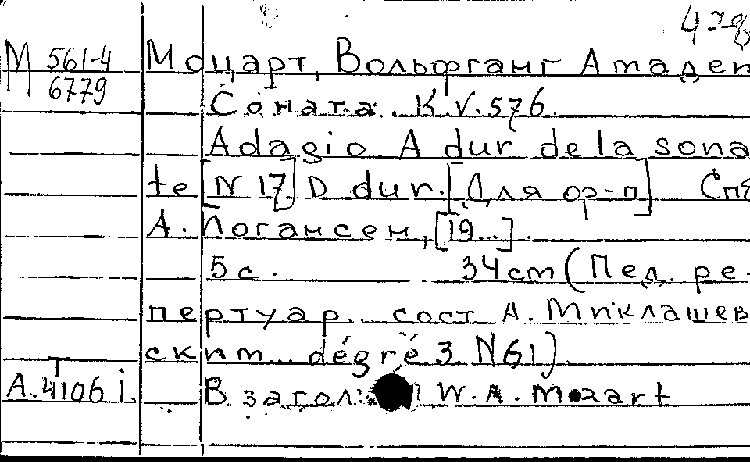 4-78
М 561-4 Моцарт, Вольфганг Амадей
6779
Соната. K.V.576.
Adagio A dur de la sona
te [N 17] D dur. [Для ор-п] Спб
А. Иогансен, [19...].
5 с. 34 cm (Пед. ре-
пертуар. сост. А. Миклашев
ским... dégré 3 N61).
А.4106 i. В загол: W. A. Mozart